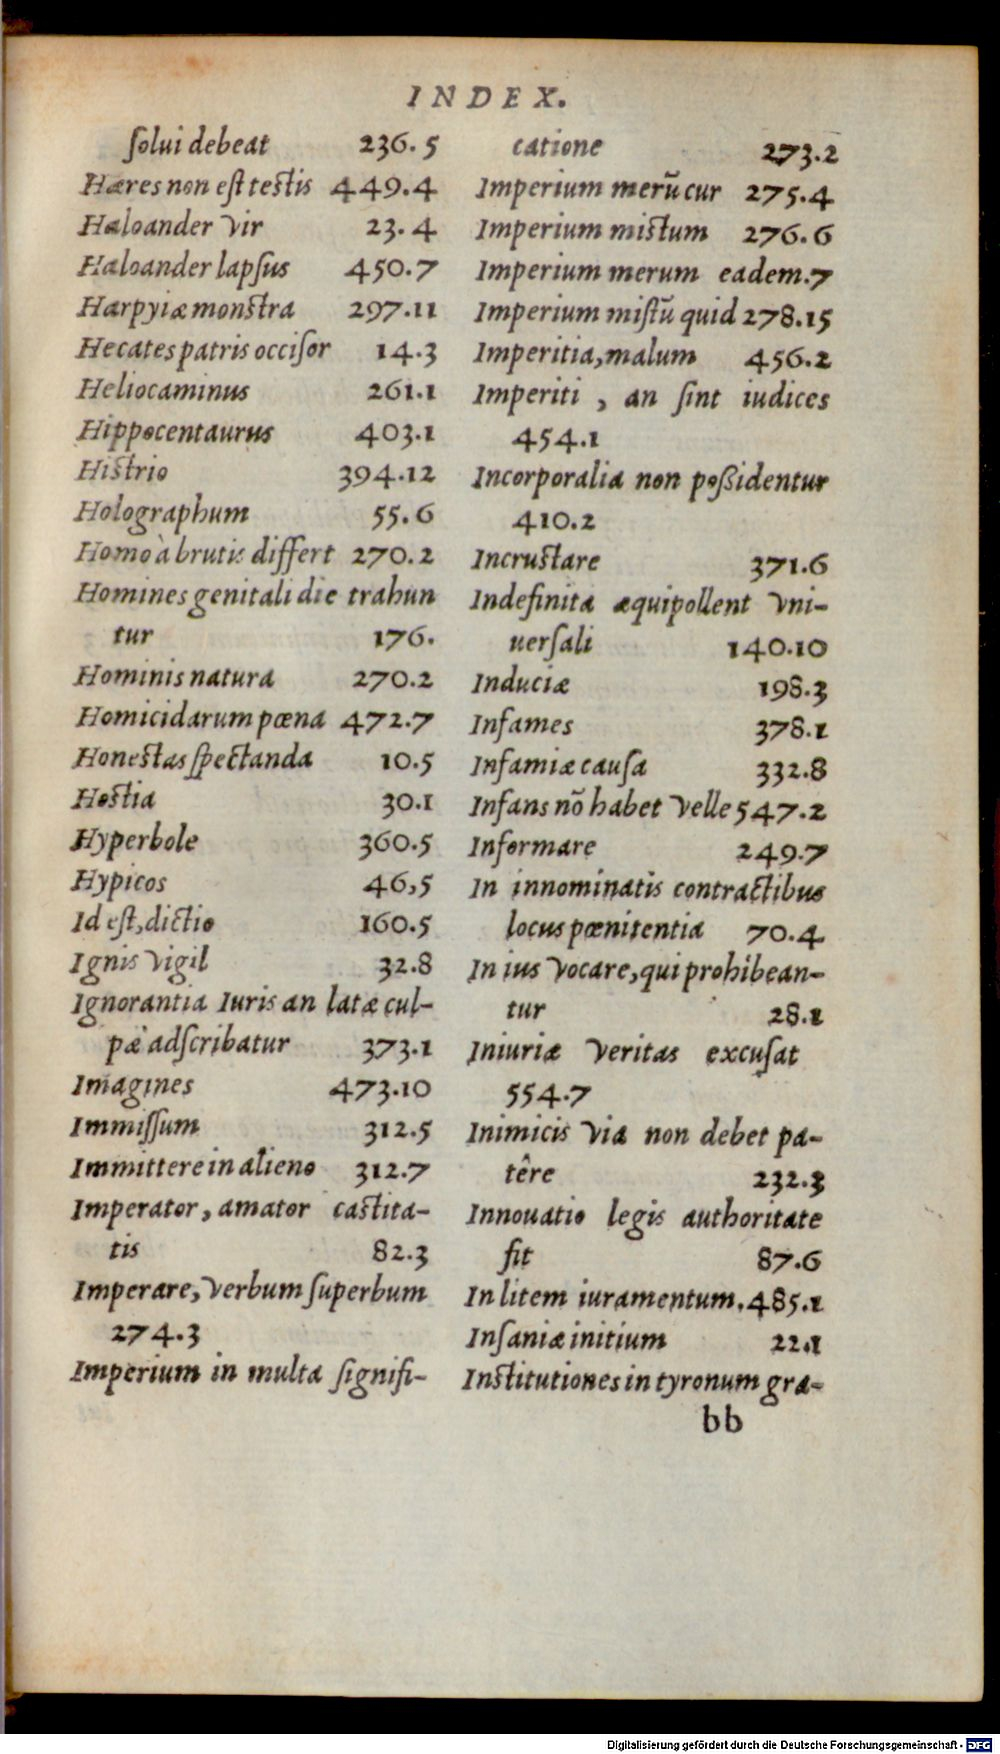 INDEX.
ſolui debeat 236.5
Hæres non eſt teſtis 449.4
Haloander vir 23.4
Haloander lapſus 450.7
Harpyiæ monſtra 297.11
Hecates patris occiſor 14.3
Heliocaminus 261.1
Hippocentaurus 403.1
Hiſtrio 394.12
Holographum 55.6
Homo à brutis differt 270.2
Homines genitali die trahun
tur 176.
Hominis natura 270.2
Homicidarum pœna 472.7
Honeſtas ſpectanda 10.5
Hoſtia 30.1
Hyperbole 360.5
Hypicos 46,5
Id eſt, dictio 160.5
Ignis vigil 32.8
Ignorantia Iuris an latæ cul-
pæ adſcribatur 373.1
Imagines 473.10
Immiſſum 312.5
Immittere in alieno 312.7
Imperator, amator caſtita-
tis 82.3
Imperare, verbum ſuperbum
274.3
Imperium in multa ſignifi-
catione 273.2
Imperium merū cur 275.4
Imperium miſtum 276.6
Imperium merum eadem.7
Imperium miſtū quid 278.15
Imperitia, malum 456.2
Imperiti, an ſint iudices
454.1
Incorporalia non poſsidentur
410.2
Incruſtare 371.6
Indefinita æquipollent vni-
uerſali 140.10
Induciæ 198.3
Infames 378.1
Infamiæ cauſa 332.8
Infans nō habet velle 547.2
Informare 249.7
In innominatis contractibus
locus pœnitentia 70.4
In ius vocare, qui prohibean-
tur 28.1
Iniuriæ veritas excuſat
554.7
Inimicis via non debet pa-
têre 232.3
Innouatio legis authoritate
fit 87.6
In litem iuramentum. 485.1
Inſaniæ initium 22.1
Inſtitutiones in tyronum gra-
bb
Digitalisierung gefördert durch die Deutsche Forschungsgemeinschaft - DFG